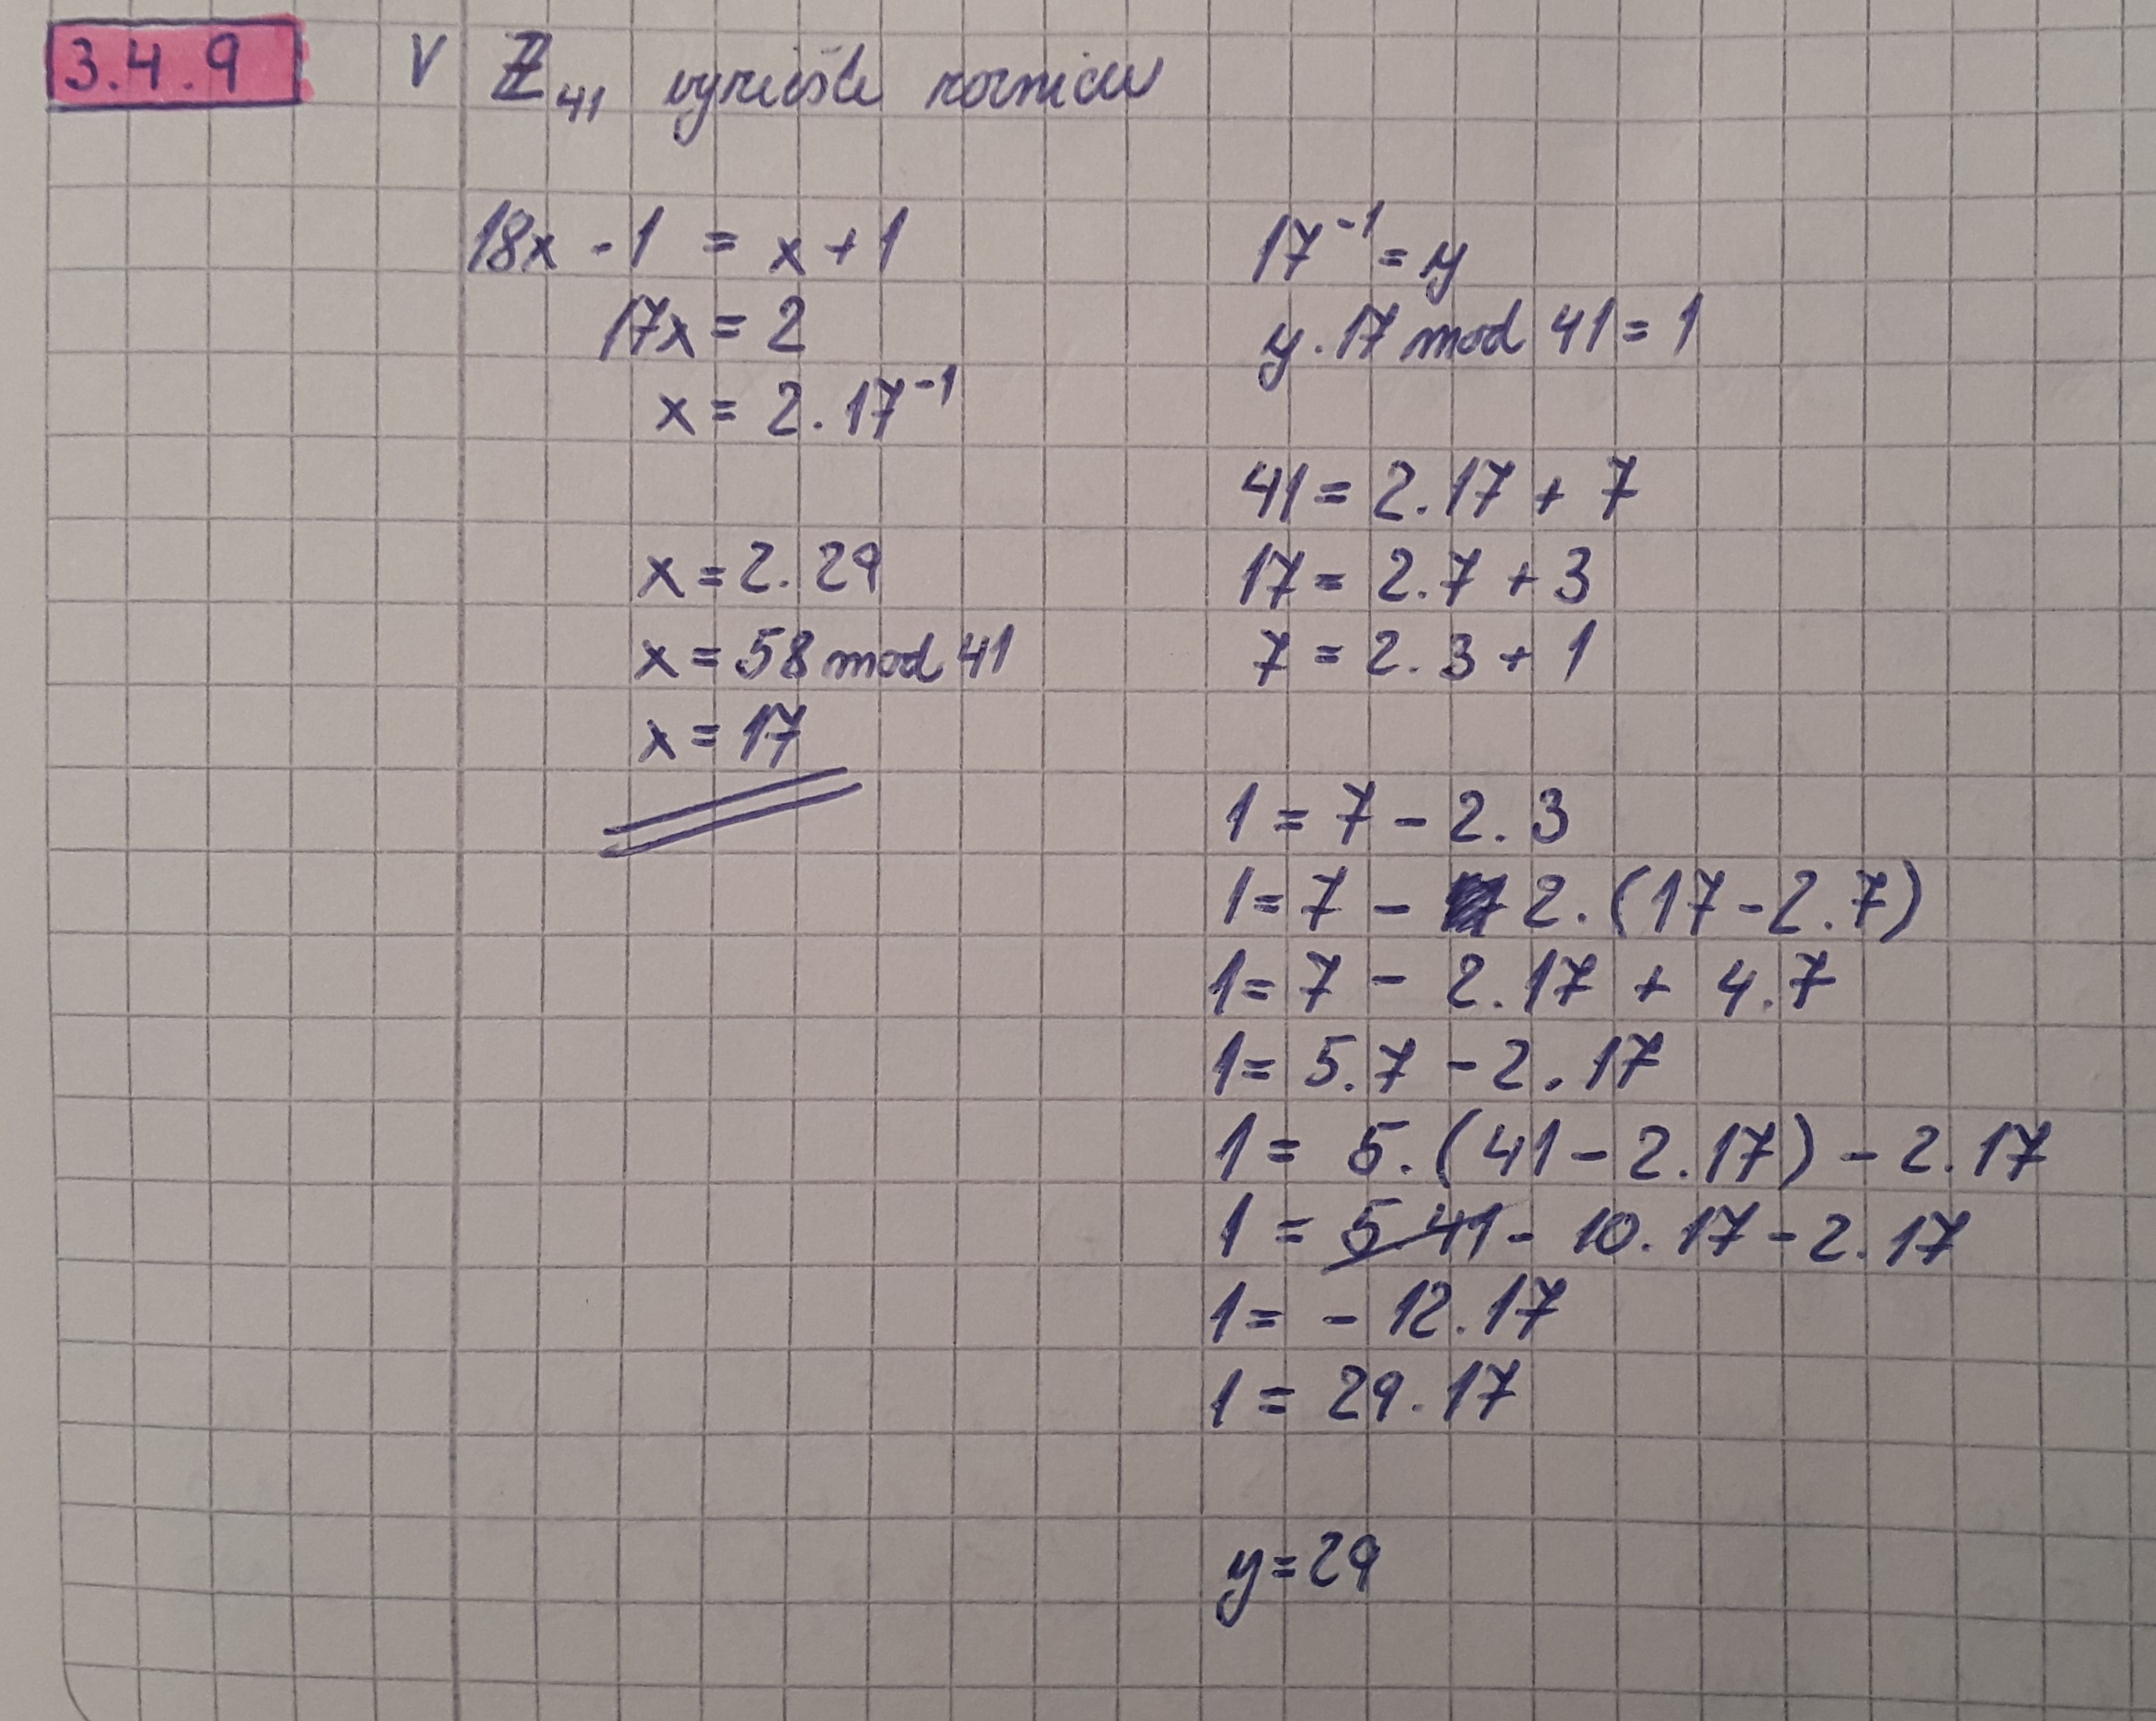 3.4.9 V ℤ₄₁ vyriešte rovnicu
18x - 1 = x + 1
17x = 2
x = 2 . 17⁻¹
x = 2 . 29
x = 58 mod 41
x = 17
17⁻¹ = y
y . 17 mod 41 = 1
41 = 2 . 17 + 7
17 = 2 . 7 + 3
7 = 2 . 3 + 1
1 = 7 - 2 . 3
1 = 7 - 2 . (17 - 2 . 7)
1 = 7 - 2 . 17 + 4 . 7
1 = 5 . 7 - 2 . 17
1 = 5 . (41 - 2 . 17) - 2 . 17
1 = 5 . 41 - 10 . 17 - 2 . 17
1 = - 12 . 17
1 = 29 . 17
y = 29